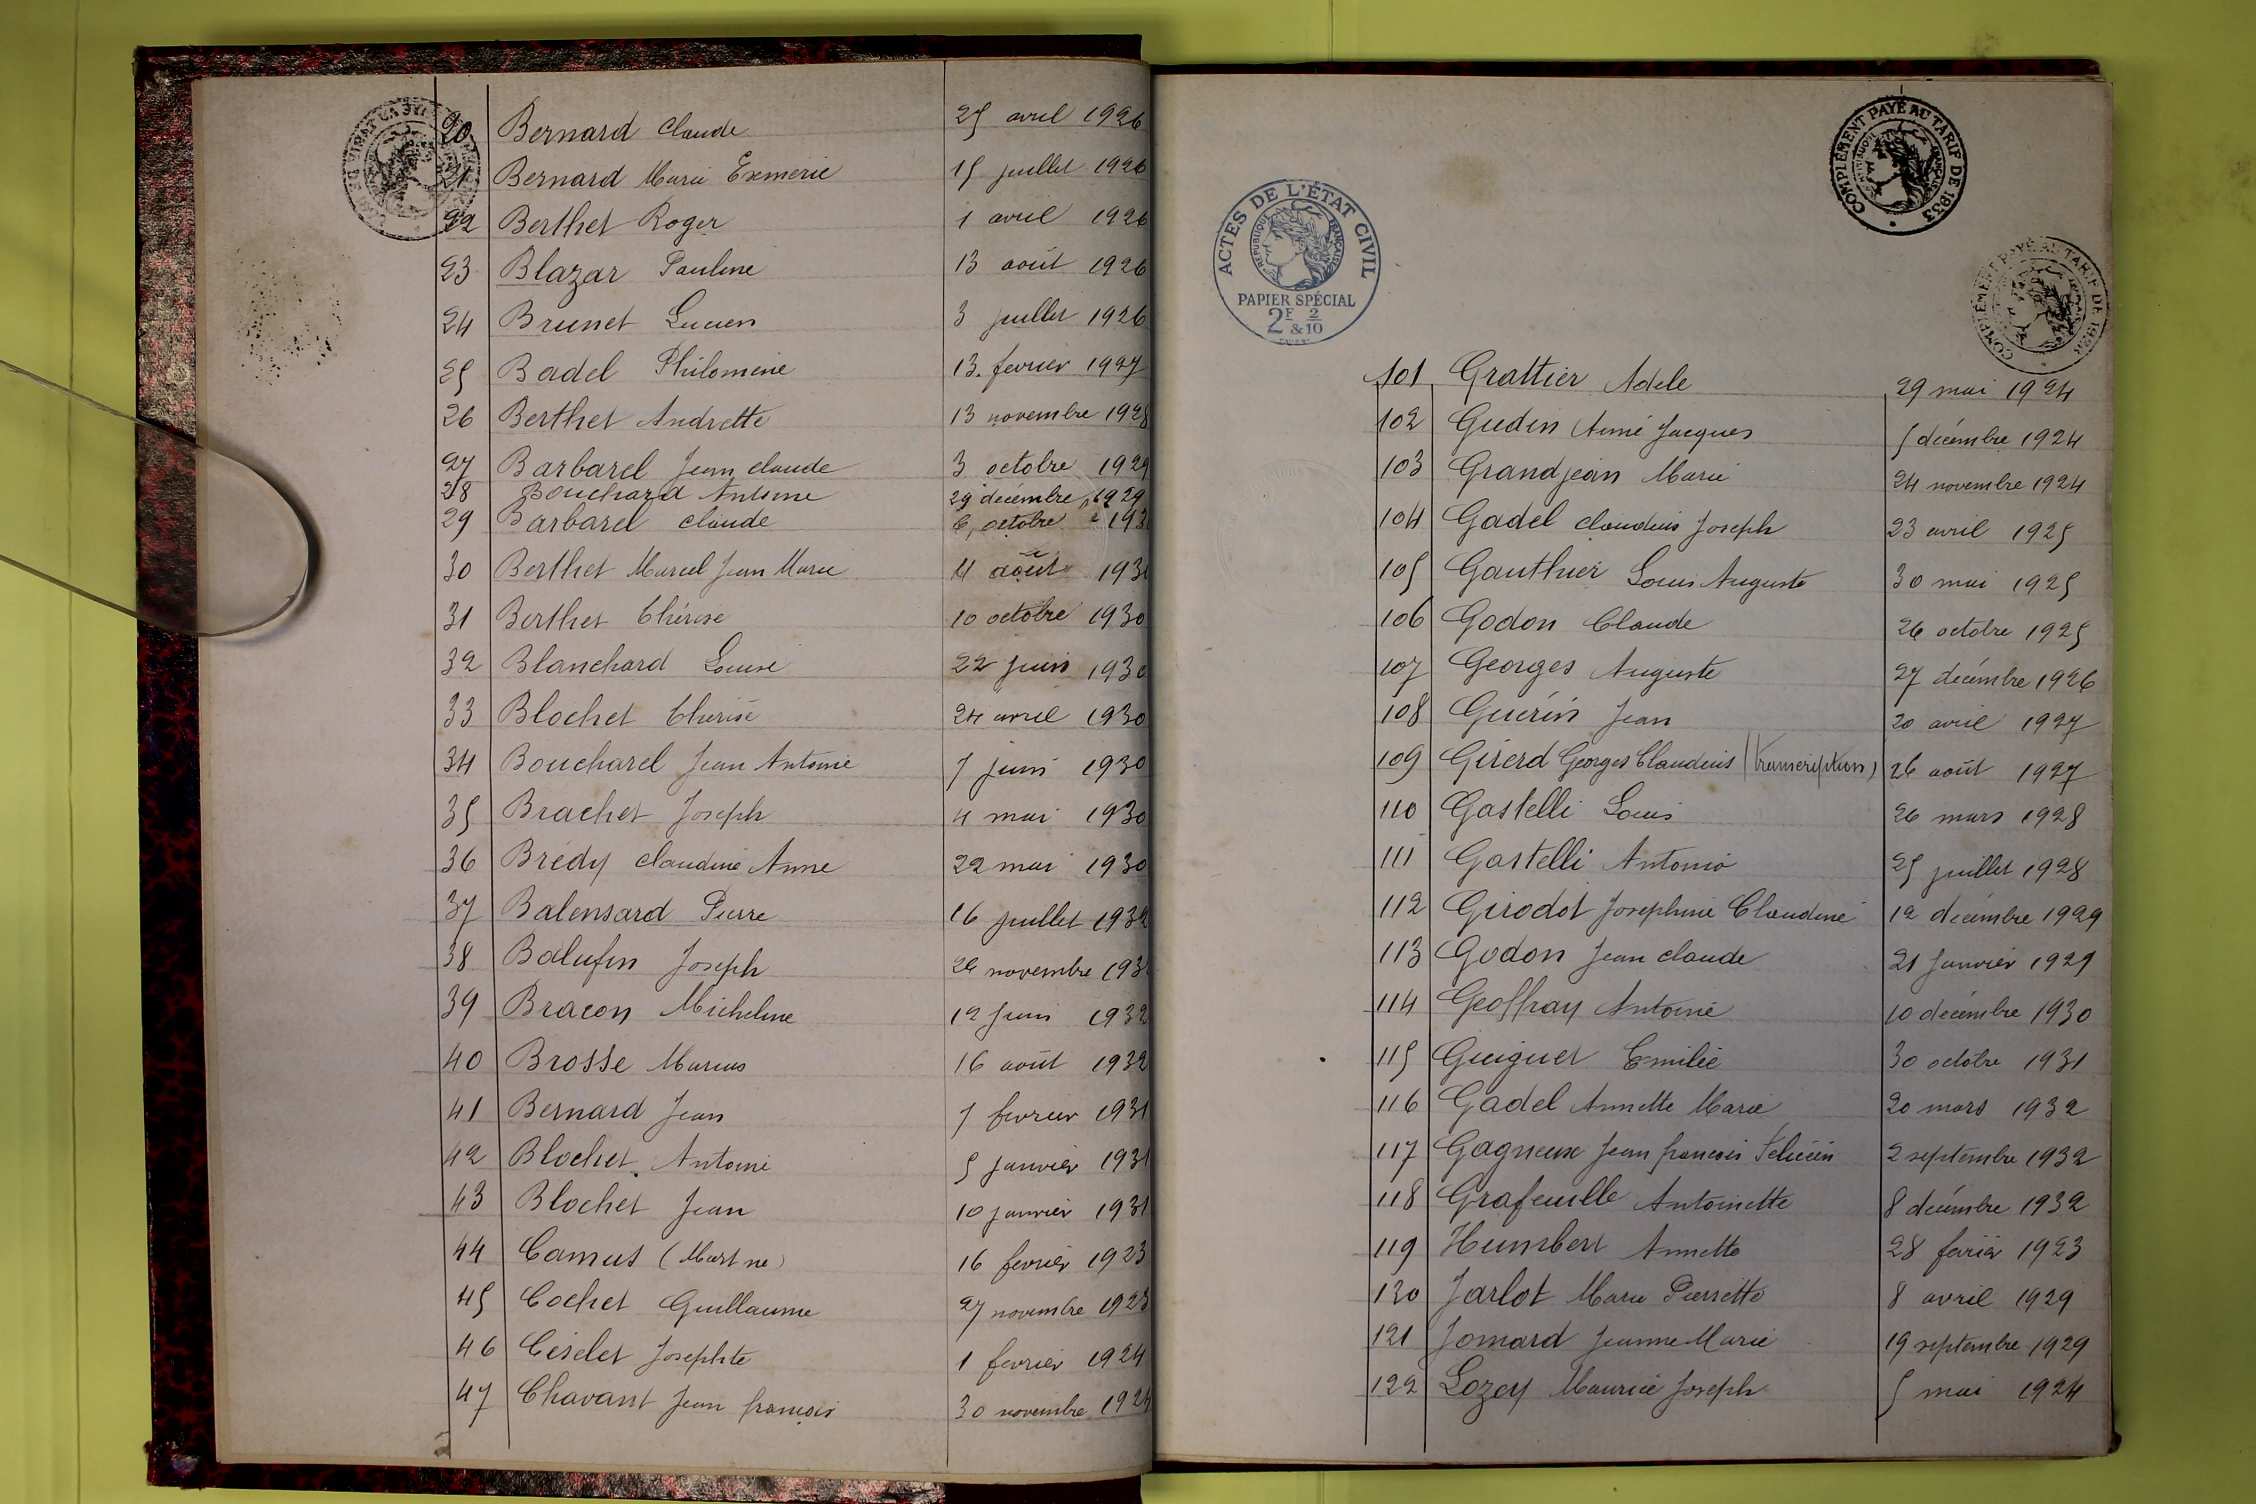 20 Bernard Claude 25 avril 1926
21 Bernard Marie Exmerie 15 juillet 1926
22 Berthet Roger 1 avril 1926
23 Blazar Pauline 13 août 1926
24 Brunet Lucien 3 juillet 1926
25 Badel Philomène 13 fevrier 1927
26 Berthet Andrette 13 novembre 1928
27 Barbarel Jean claude 3 octobre 1929
28 Bouchard Antoine 29 décembre 1929
29 Barbarel claude 6 octobre 193
30 Berthet Marcel Jean Marie 4 août 193
31 Berthet Thérèse 10 octobre 1930
32 Blanchard Louise 22 juin 1930
33 Blochet Thérèse 24 avril 1930
34 Bouchard Jean Antoine 7 juin 1930
35 Brachet Joseph 4 mai 1930
36 Brédy claudine Anne 22 mai 1930
37 Balensard Pierre 16 juillet 1932
38 Balufin Joseph novembre 193
39 Bracon Micheline 12 juin 1932
40 Brosse Marius 16 août 1932
41 Bernard Jean 7 fevrier 1931
42 Blochet Antoine 5 janvier 1931
43 Blochet Jean 10 janvier 1931
44 Camus (Mort né) 16 fevrier 1923
45 Cochet Guillaume 27 novembre 1923
46 Ciselet Josephte 1 fevrier 1924
47 Chavant Jean françois 30 novembre 1924
COMPLÉMENT PAYÉ AU TARIF DE 1933
RÉPUBLIQUE FRANÇAISE
COMPLÉMENT PAYÉ AU TARIF DE
ACTES DE L'ÉTAT CIVIL
RÉPUBLIQUE FRANÇAISE
PAPIER SPÉCIAL
2F & 2/10
101 Grattier Adele 29 mai 1924
102 Gudin Aimé Jacques 5 décembre 1924
103 Grandjean Marie 24 novembre 1924
104 Gadel claudius Joseph 23 avril 1925
105 Gauthier Louis Auguste 30 mai 1925
106 Godon Claude 26 octobre 1925
107 Georges Auguste 27 décembre 1926
108 Guérin Jean 20 avril 1927
109 Girerd Georges Claudius (transcription) 26 août 1927
110 Gastelli Louis 26 mars 1928
111 Gastelli Antonio 25 juillet 1928
112 Girodot Josephine Claudine 12 décembre 1929
113 Godon Jean claude 21 janvier 1929
114 Geoffray Antoine 10 décembre 1930
115 Guiguet Emilie 30 octobre 1931
116 Gadel Annette Marie 20 mars 1932
117 Gagneux Jean françois Félicien 2 septembre 1932
118 Grafeuille Antoinette 8 décembre 1932
119 Humbert Annette 28 fevrier 1923
120 Jarlot Marie Pierrette 8 avril 1929
121 Jomard Jeanne Marie 19 septembre 1929
122 Lozey Maurice Joseph 5 mai 1924